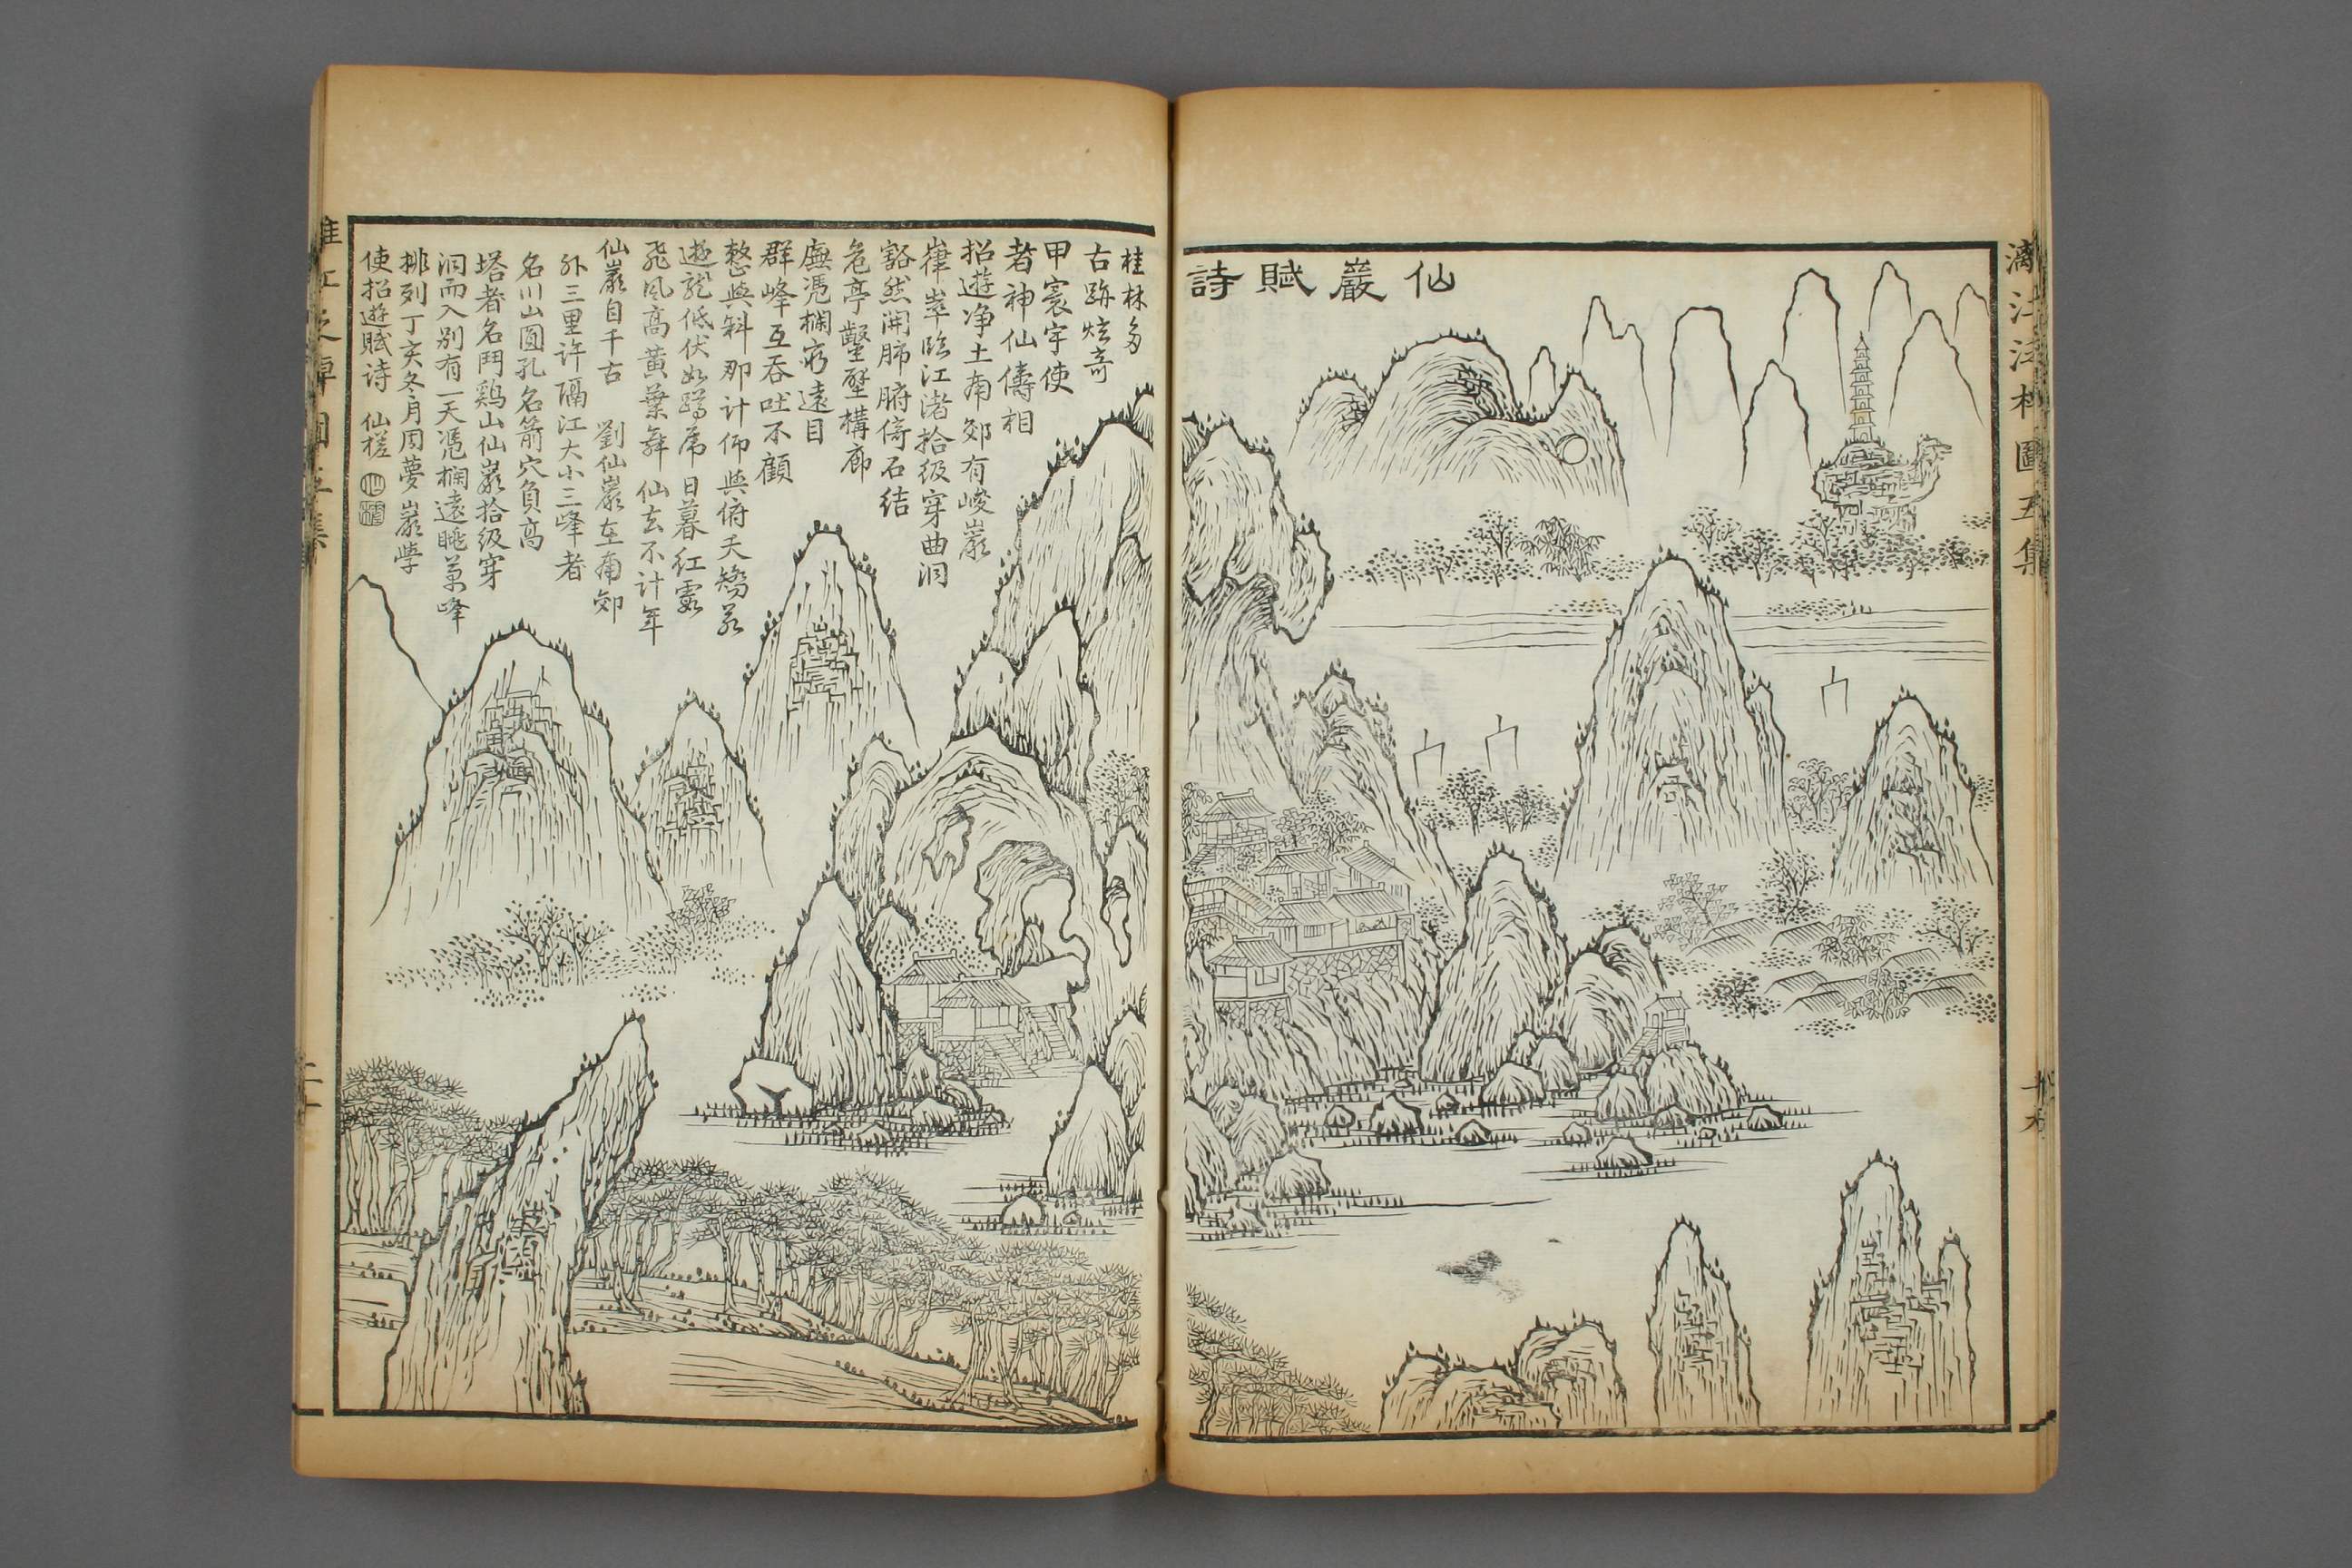 仙巖賦詩
桂林多
古跡炫奇
甲寰宇使
者神仙儔相
招遊净土南郊有峻巖
嵂崒臨江渚拾级穿曲洞
豁然開肺腑倚石结
危亭鑿壁構廊
廡憑欄窮遠目
群峰互吞吐不顧
整與斜那計仰與俯夭矯若
遊龍低伏如蹲虎日暮紅霞
飛風高黃葉舞仙去不计年
仙巖自千古 劉仙巖在南郊
外三里许隔江大小三峰者
名川山圓孔名箭穴負高
塔者名鬥鷄山仙巖拾级穿
洞而入别有一天憑欄遠眺萬峰
排列丁亥冬月周夢巖學
使招遊賦诗 仙槎
漓江泛棹圖五集